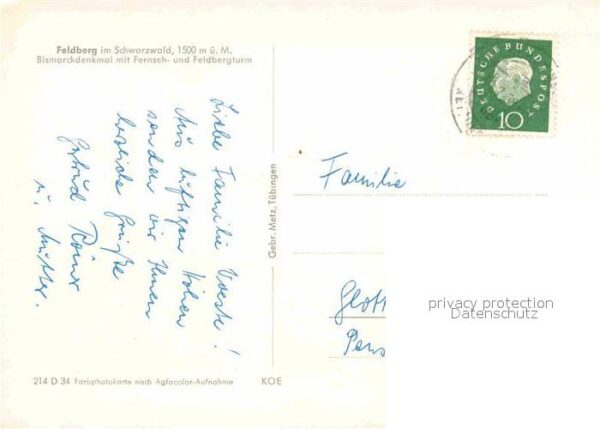 Feldberg im Schwarzwald, 1500 m ü. M.
Bismarckdenkmal mit Fernseh- und Feldbergturm
Liebe Familie Voeste!
Aus luftigen Höhen
senden wir Ihnen
herzliche Grüße
Gertrud
u. Mutter.
Gebr. Metz, Tübingen
214 D 34 Farbphotokarte nach Agfacolor-Aufnahme
KOE
DEUTSCHE BUNDESPOST
10
Familie
Glott
Pens
privacy protection
Datenschutz